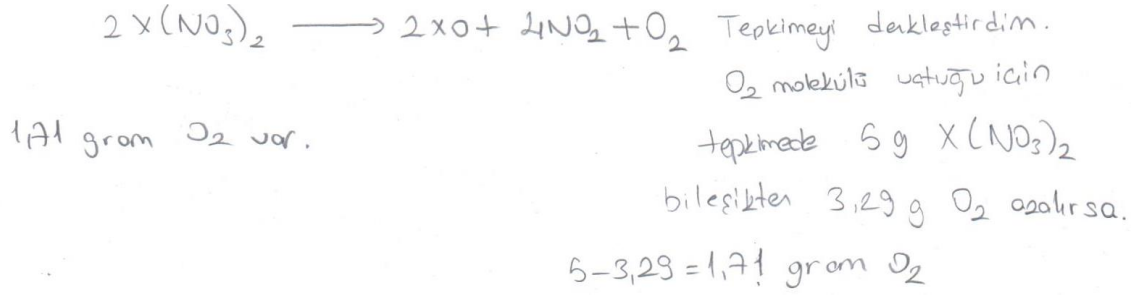 2X(NO₃)₂ ⟶ 2XO + 4NO₂ + O₂ Tepkimeyi denkleştirdim.
O₂ molekülü uçtuğu için
1,71 gram O₂ var.
tepkimede 5 g X(NO₃)₂
bileşikten 3,29 g O₂ azalırsa.
5-3,29 = 1,71 gram O₂